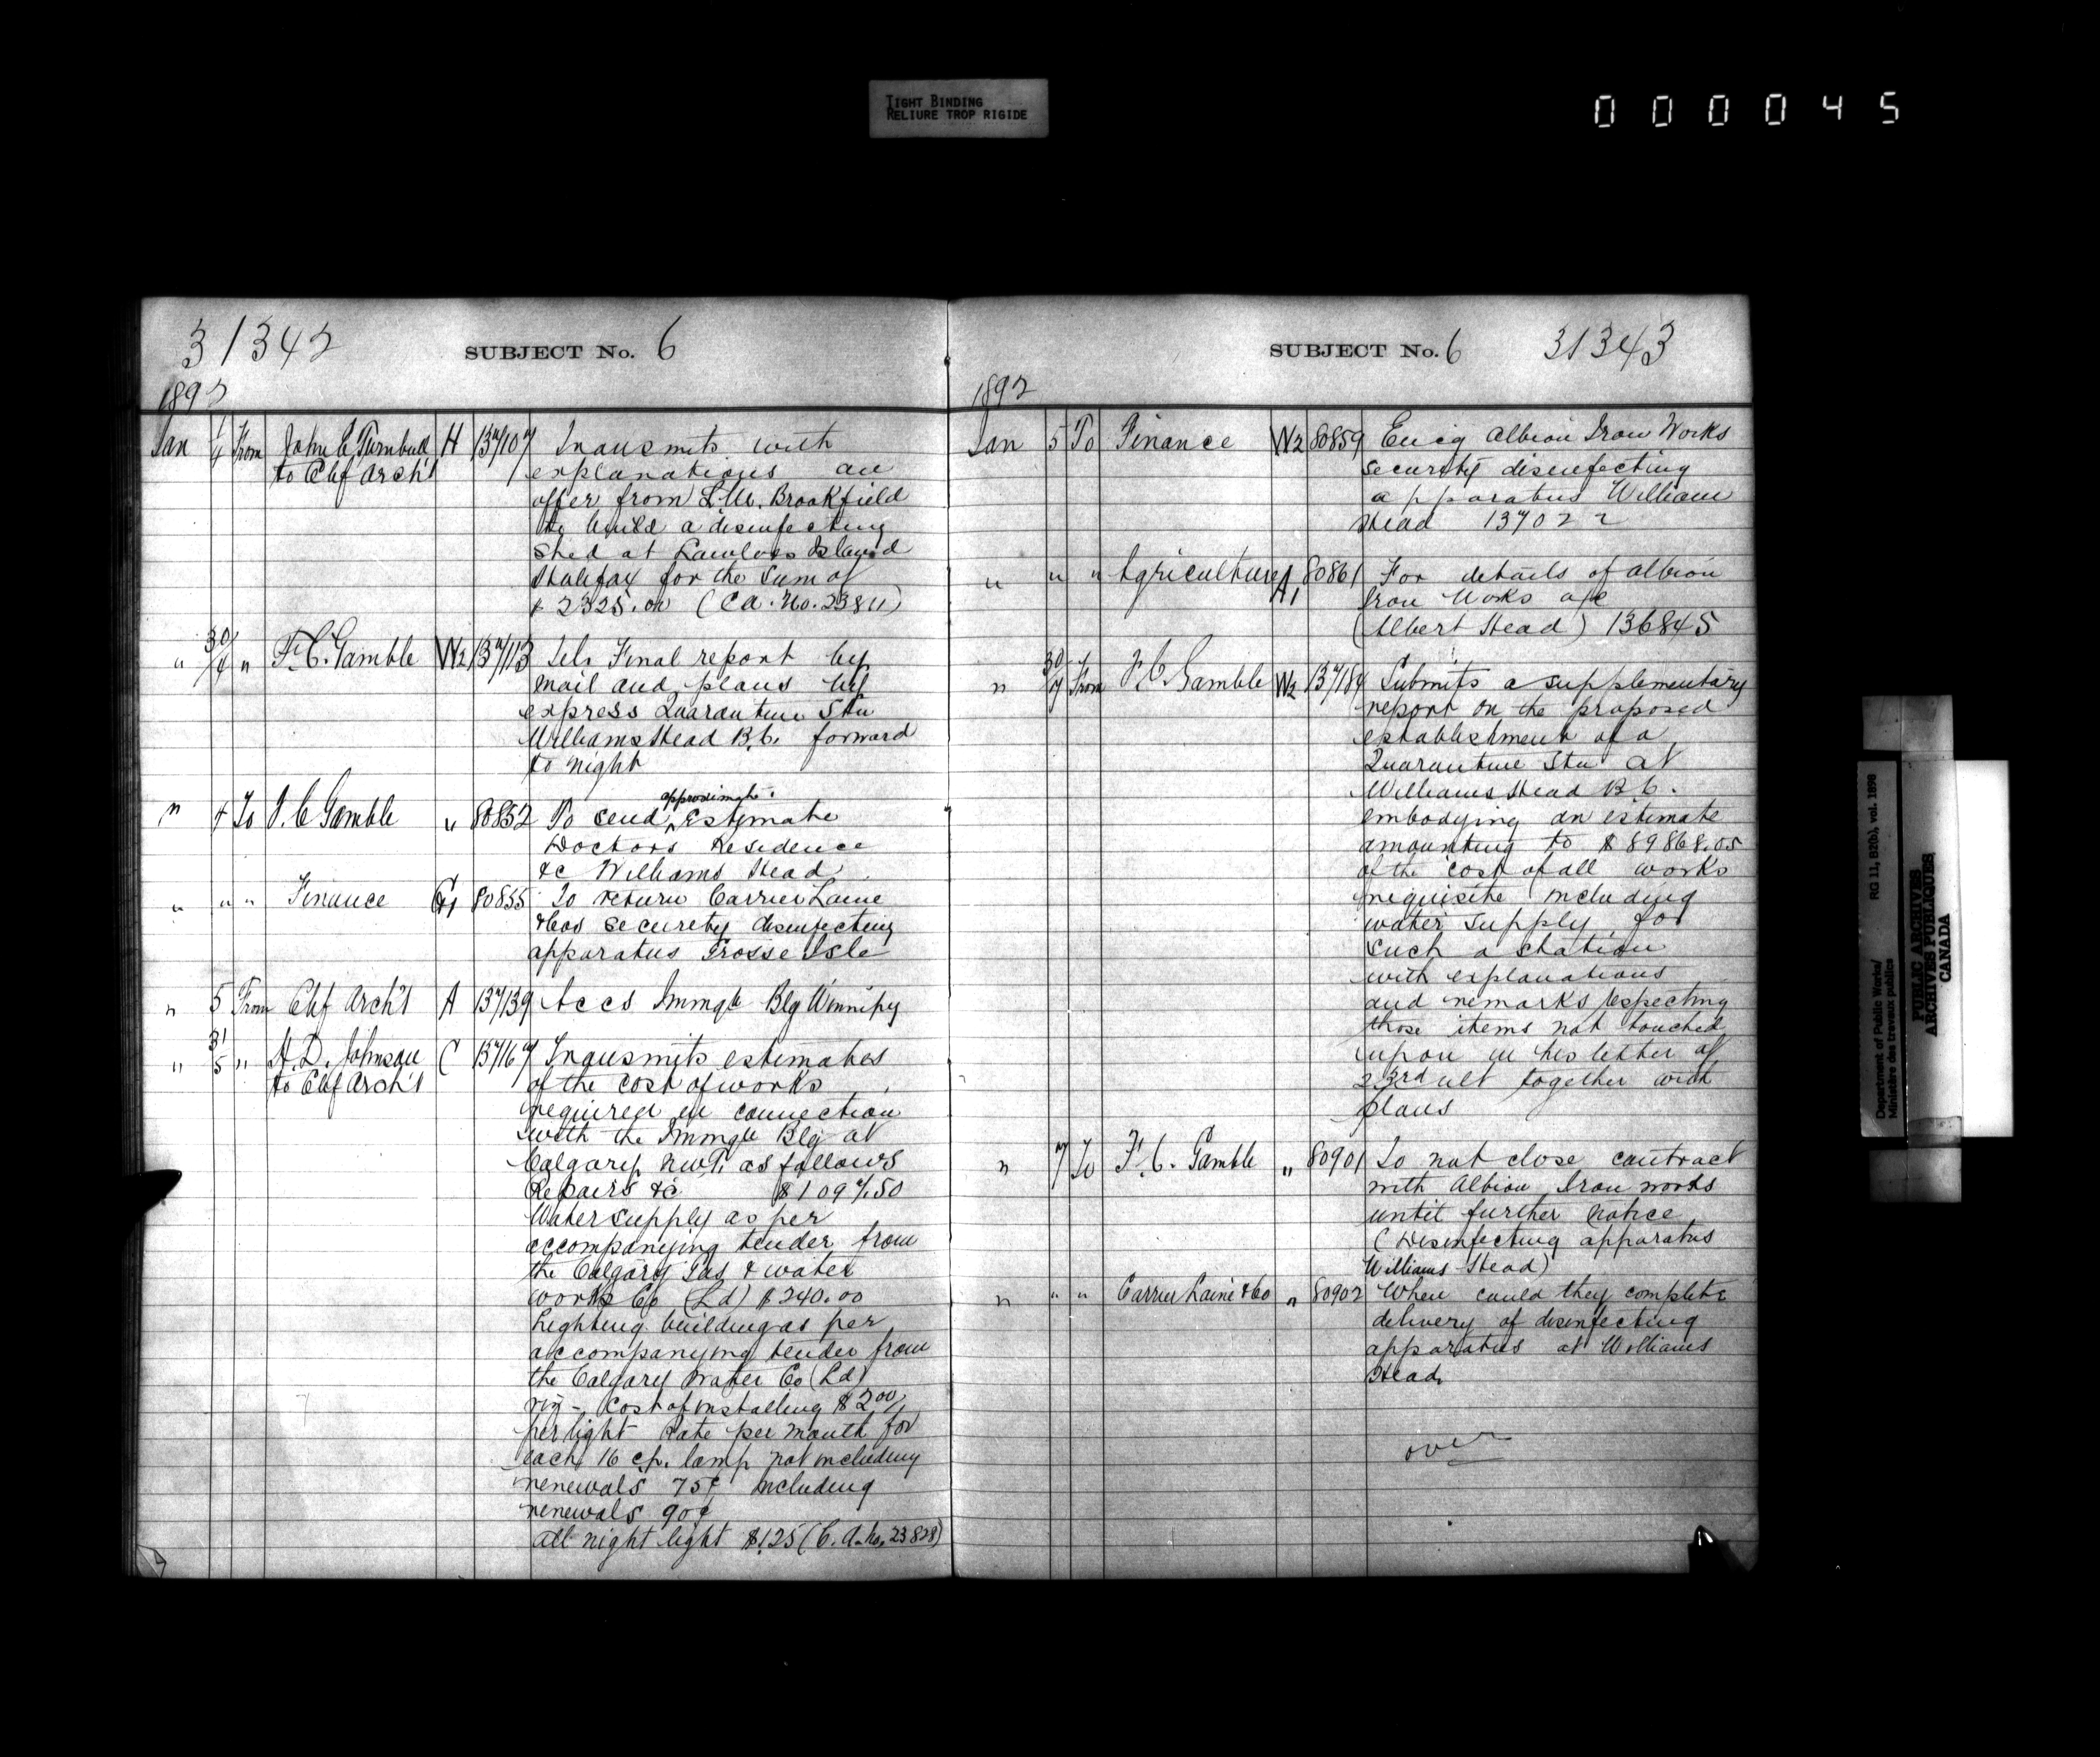 TIGHT BINDING
RELIURE TROP RIGIDE
000045
31342
SUBJECT No. 6
1892
Jan 1/4 From John E Turnbull H 137107 Transmits with
to Chf Arch't explanations an
offer from S.M. Brookfield
to build a disinfecting
shed at Lawlors Island
Halifax for the sum of
$2325.00 (Ca. No. 23811)
" 30/4 " F.C. Gamble W2 137113 Tels Final report by
mail and plans by
express Quarantine Stn
Williams Head B.C. forward
to night
" 4 To F.C Gamble " 80852 To send approximate Estimate
Doctors Residence
&c Williams Head
" " " Finance G1 80855 To return Carrier Laine
&Cos security disinfecting
apparatus Grosse Isle
" 5 From Chf Arch't A 137139 Accs Immgn Blg Winnipg
" 31/5 " H.D. Johnson C 137167 Transmits estimates
to Chf Arch't of the cost of works
required in connection
with the Immgn Blg at
Calgary, NWT. as follows
Repairs &c $1097.50
Water supply as per
accompanying tender from
the Calgary Gas & water
works Co (Ld) $240.00
Lighting building as per
accompanying tender from
the Calgary Water Co (Ld)
viz - Cost of installing $2.00
per light Rate per month for
each 16 cp. lamp not including
renewals 75¢ including
renewals 90¢
All night light $1.25 (C.A. No. 23828)
SUBJECT No. 6
31343
1892
Jan 5 To Finance W2 80859 Encg Albion Iron Works
security disinfecting
apparatus William
Head 137022
" " " Agriculture A1 80861 For details of Albion
Iron Works a/c
(Albert Head) 136845
" 30/7 From F.C. Gamble W2 137184 Submits a supplementary
report on the proposed
establishment of a
Quarantine Stn at
Williams Head B.C.
embodying an estimate
amounting to $89868.05
of the cost of all works
requisite including
water supply for
such a station
with explanations
and remarks respecting
those items not touched
upon in his letter of
23rd ult together with
plans
" 7 To F.C. Gamble " 80901 To not close contract
with Albion Iron works
until further notice
(Disinfecting apparatus
Williams Head)
" " " Carrier Laine & Co " 80902 When could they complete
delivery of disinfecting
apparatus at Williams
Head
over
Department of Public Works/
Ministère des travaux publics
RG 11, B2(b), vol. 1898
PUBLIC ARCHIVES
ARCHIVES PUBLIQUES
CANADA